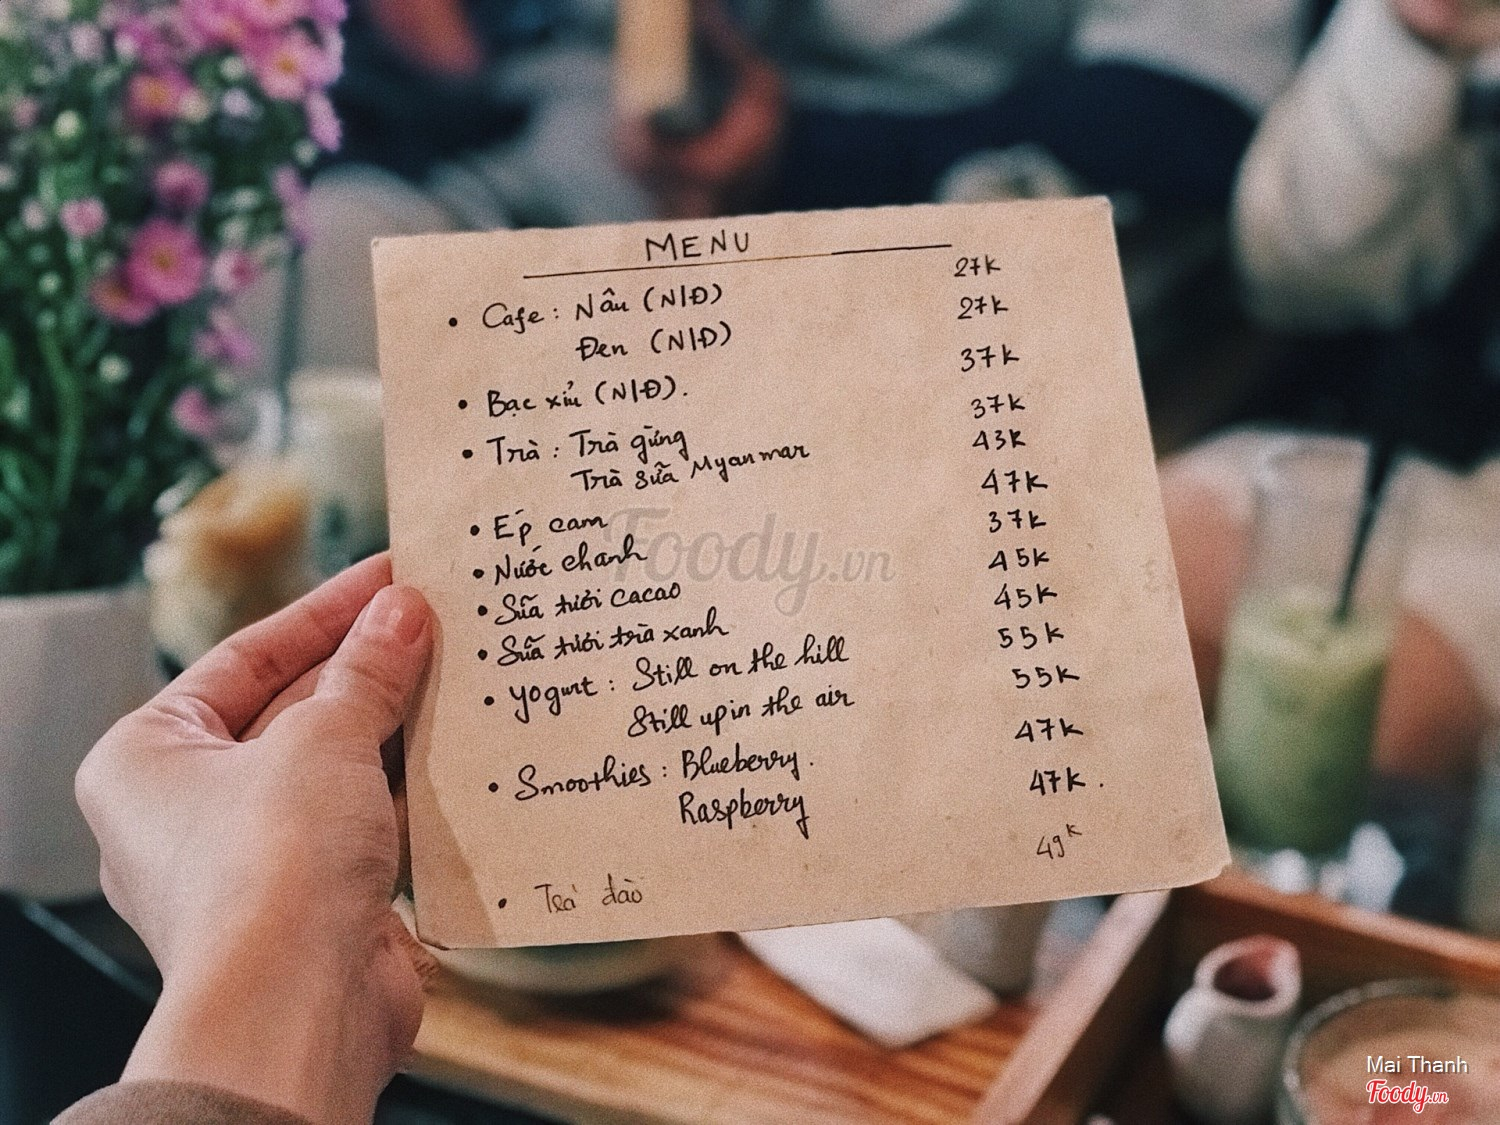 MENU
• Cafe : Nâu (N/Đ) 27k
Đen (N/Đ) 27k
• Bạc xỉu (N/Đ). 37k
• Trà : Trà gừng 37k
Trà sữa Myanmar 43k
• Ép cam 47k
• Nước chanh 37k
• Sữa tươi cacao 45k
• Sữa tươi trà xanh 45k
• Yogurt : Still on the hill 55k
Still up in the air 55k
• Smoothies : Blueberry. 47k
Raspberry 47k.
• Trà đào 49k
Foody.vn
Mai Thanh
Foody.vn